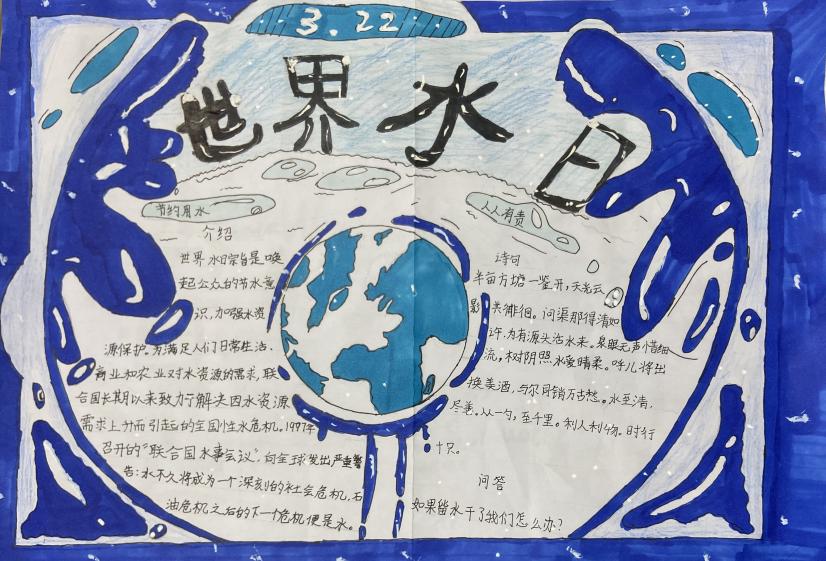 3.22
世界水日
节约用水
介绍
世界水日宗旨是唤
起公众的节水意
识,加强水资
源保护。为满足人们日常生活、
商业和农业对水资源的需求,联
合国长期以来致力于解决因水资源
需求上升而引起的全国性水危机。1977年
召开的“联合国水事会议”,向全球发出严重警
告:水不久将成为一个深刻的社会危机,石
油危机之后的下一个危机便是水。
人人有责
诗句
半亩方塘一鉴开,天光云
影共徘徊。问渠那得清如
许,为有源头活水来。泉眼无声惜细
流,树阴照水爱晴柔。呼儿将出
换美酒,与尔同销万古愁。水至清,
尽美。从一勺,至千里。利人利物。时行
时止。
问答
如果水干了我们怎么办?